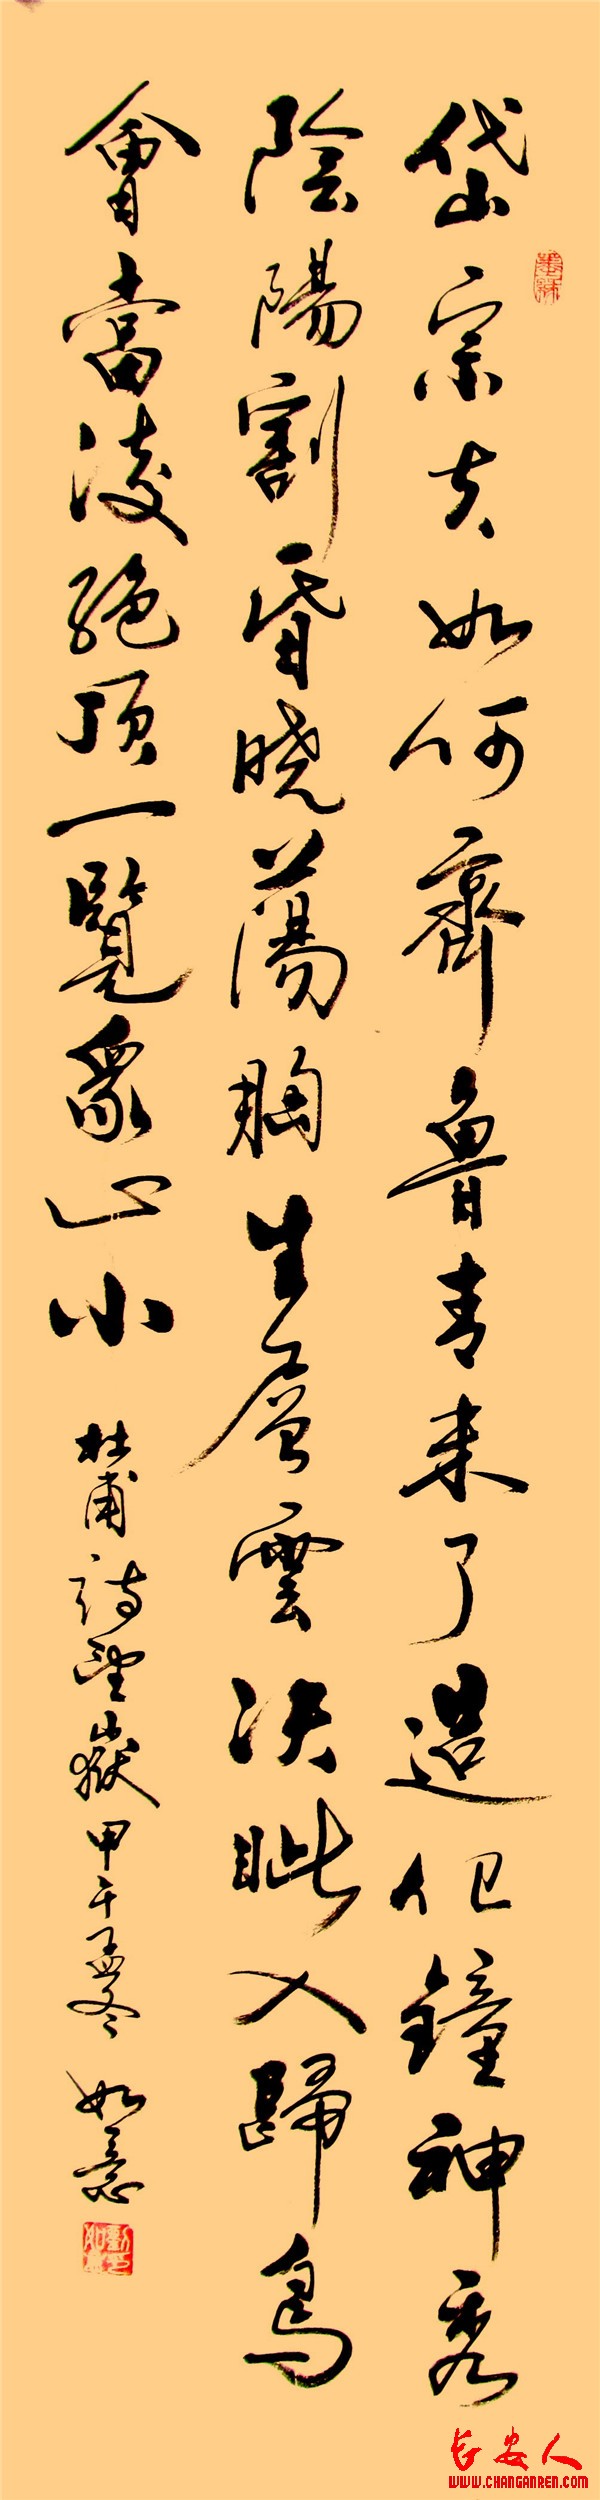 岱宗夫如何齊魯青未了造化鐘神秀
陰陽割昏晓蕩胸生層雲决眦入歸鳥
會當凌絕頂一覽眾山小 杜甫詩望嶽 甲午孟冬 如意
长安人
WWW.CHANGANREN.COM